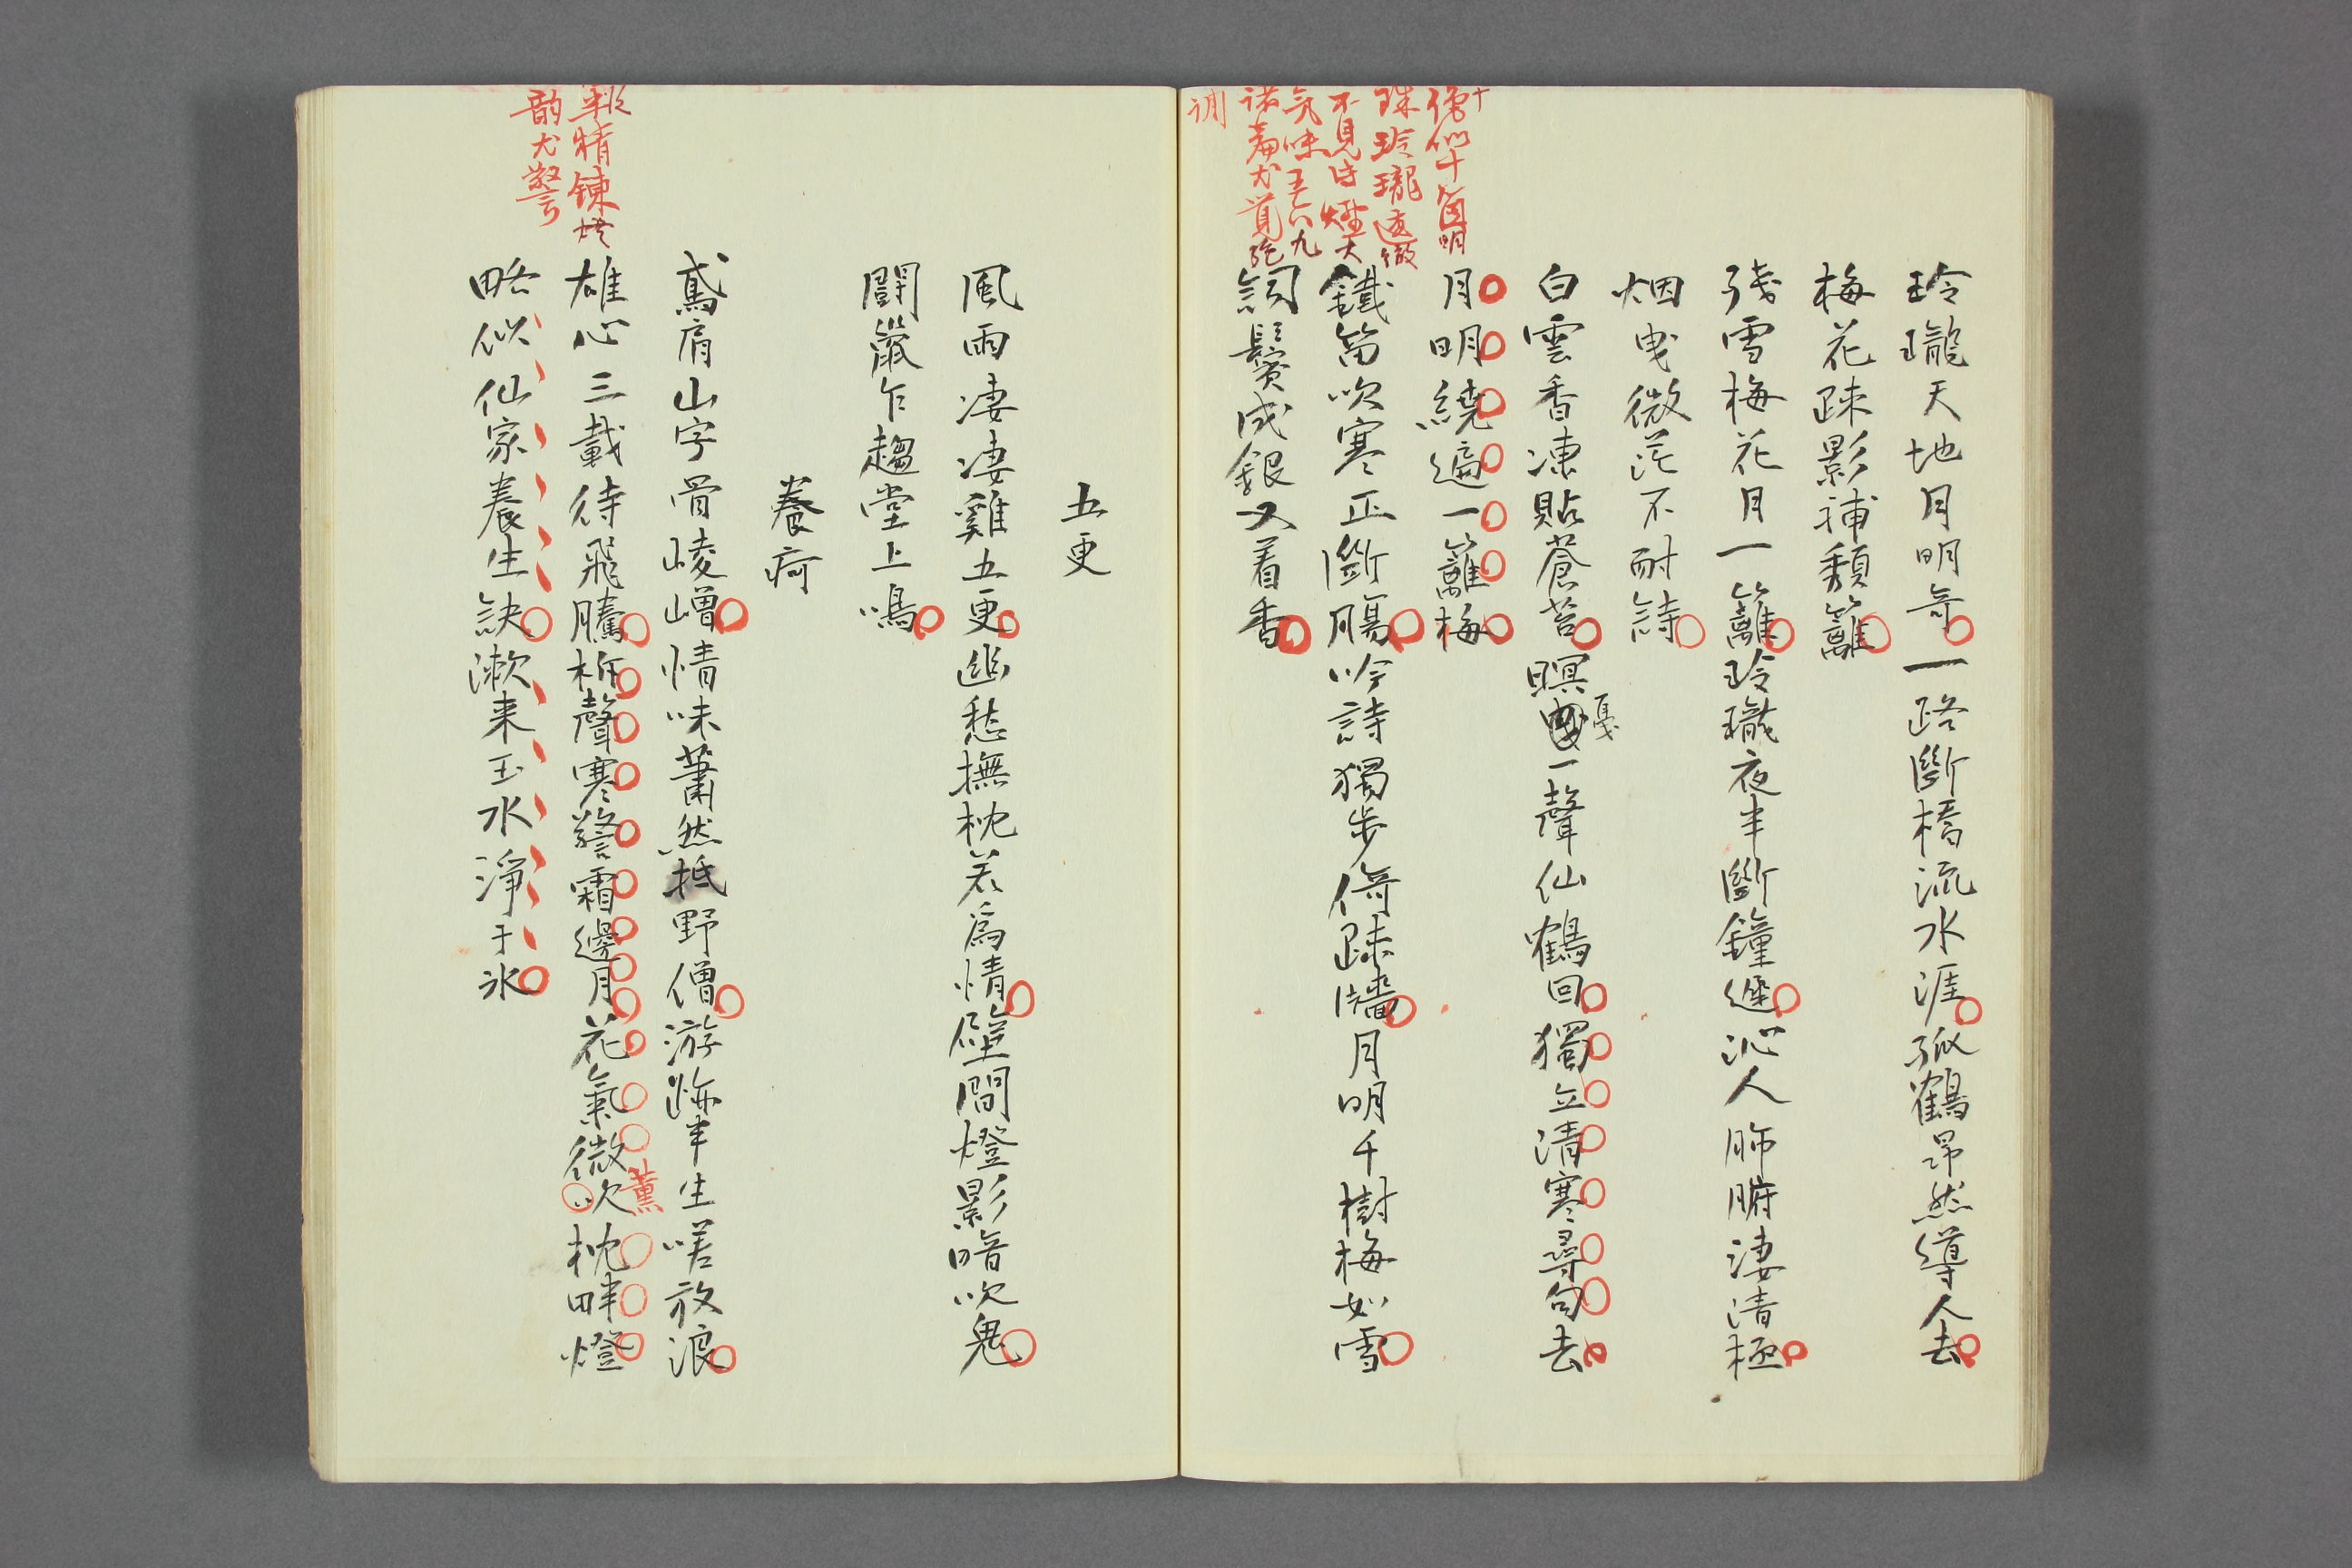 玲瓏天地月明奇一路斷橋流水涯孤鶴昂然導人去
梅花踈影補頽籬
殘雪梅花月一籬玲瓏夜半斷鐘遲沁人肺腑淒清極
烟曳微茫不耐詩
白雲香凍貼蒼苔暝戛一聲仙鶴回獨立清寒尋句去
月明繞遍一籬梅
鐵笛吹寒正斷腸吟詩獨步倚踈墻月明千樹梅如雪
詞鬢成銀又着香
十
僧似十箇明
珠玲瓏透徹
不見詩煙大
氣味五六九
諸篇尤覺
調
五更
風雨凄凄雞五更幽愁撫枕若爲情壁間燈影暗吹鬼
鬪鼠乍趨堂上鳴
養疴
鳶肩山字骨崚嶒情味蕭然抵野僧游跡半生嗟放浪
雄心三載待飛騰柝聲寒警霜邊月花氣微吹枕畔燈
薫
略似仙家養生訣漱来玉水淨于氷
精鍊
韵尤警